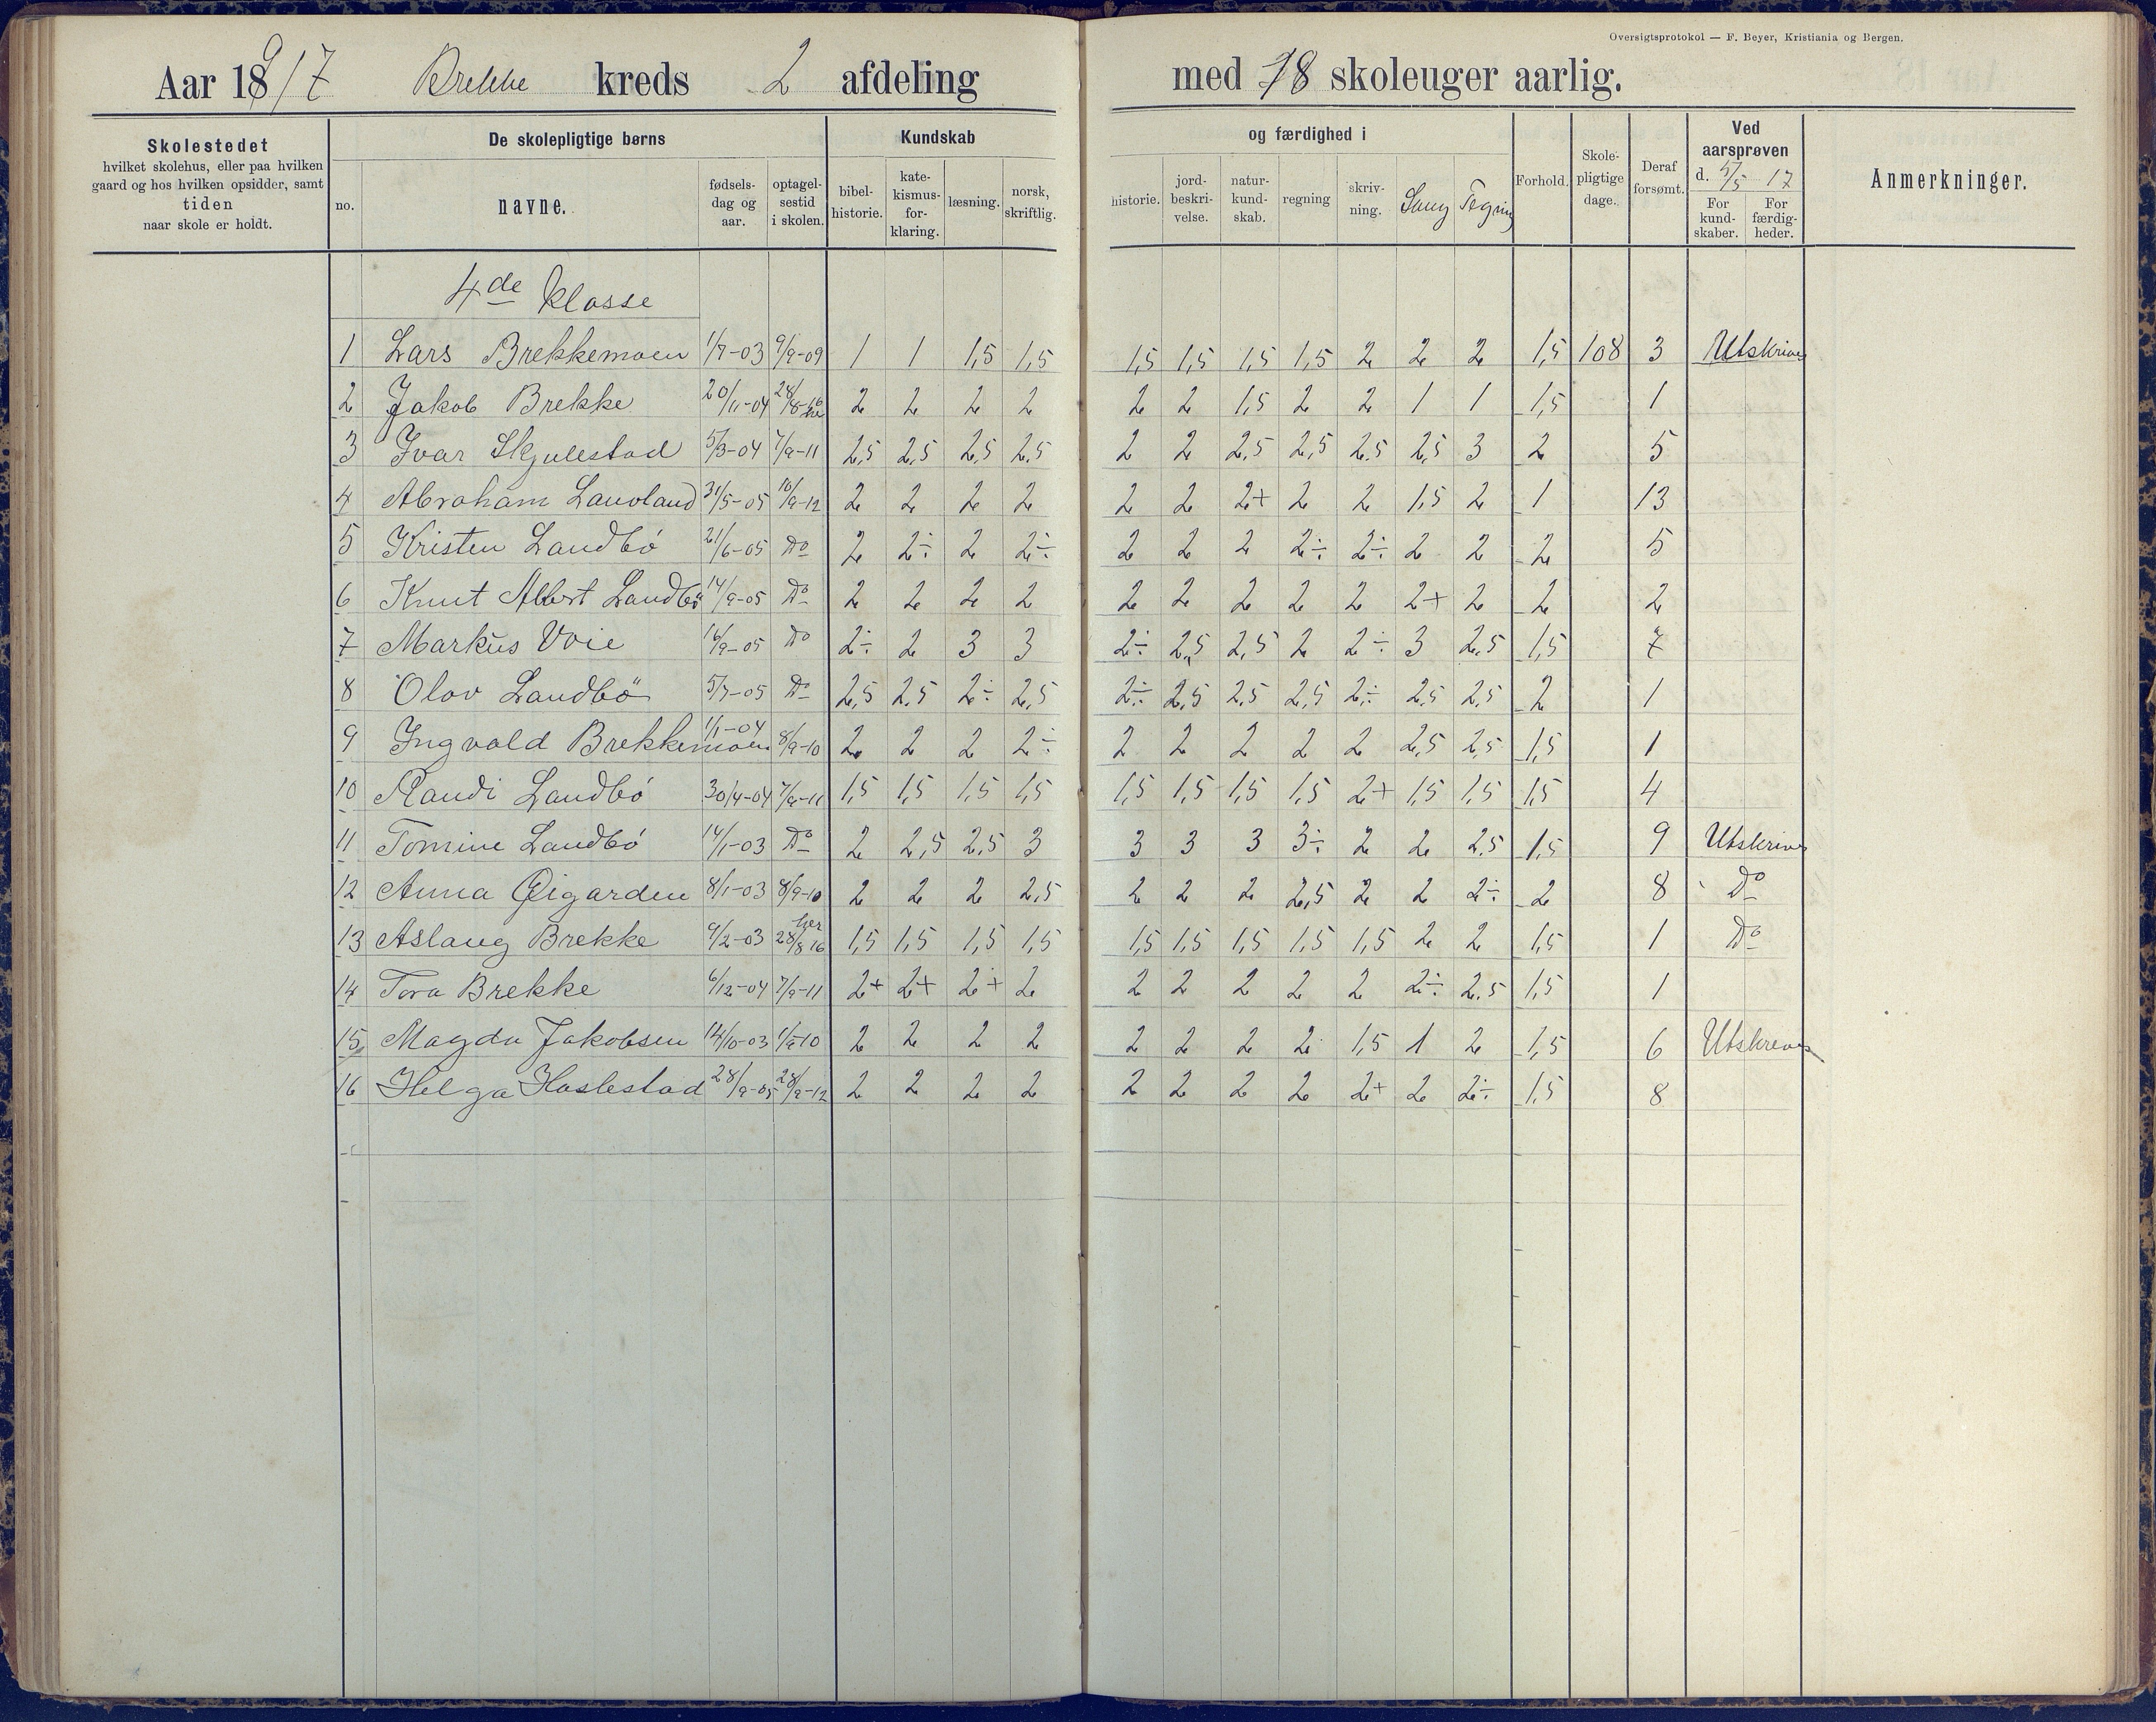 Oversigtsprotokol — F. Beyer, Kristiania og Bergen.
Aar 1917 Brekke kreds 2 afdeling med 18 skoleuger aarlig.
Skolestedet
hvilket skolehus, eller paa hvilken
gaard og hos hvilken opsidder, samt
tiden
naar skole er holdt.
De skolepligtige børns
no. navne. fødsels-dag og aar. optagel-sestid i skolen.
Kundskab og færdighed i
bibel-historie. kate-kismus-for-klaring. læsning. norsk, skriftlig. historie. jord-beskri-velse. natur-kund-skab. regning skriv-ning. Sang Tegning
Forhold. Skole-pligtige dage. Deraf forsømt.
Ved aarsprøven
d. 5/5 17
For kund-skaber. For færdig-heder.
Anmerkninger.
4de klasse
1 Lars Brekkemoen 1/7-03 9/9-09 1 1 1,5 1,5 1,5 1,5 1,5 1,5 2 2 2 1,5 108 3 Utskrives
2 Jakob Brekke 20/11-04 28/8-16 her 2 2 2 2 2 2 1,5 2 2 1 1 1,5 1
3 Ivar Skjulestad 5/3-04 7/9-11 2,5 2,5 2,5 2,5 2 2 2,5 2,5 2,5 2,5 3 2 5
4 Abraham Lauvland 31/5-05 10/9-12 2 2 2 2 2 2 2+ 2 2 1,5 2 1 13
5 Kristen Landbö 21/6-05 Do 2 2÷ 2 2÷ 2 2 2 2÷ 2÷ 2 2 2 5
6 Knut Albert Landbö 14/9-05 Do 2 2 2 2 2 2 2 2 2 2+ 2 2 2
7 Markus Voie 16/9-05 Do 2÷ 2 3 3 2÷ 2,5 2,5 2 2÷ 3 2,5 1,5 7
8 Olav Landbö 5/7-05 Do 2,5 2,5 2÷ 2,5 2÷ 2,5 2,5 2,5 2÷ 2,5 2,5 2 1
9 Ingvald Brekkemoen 1/1-04 8/9-10 2 2 2 2÷ 2 2 2 2 2 2,5 2,5 1,5 1
10 Randi Landbö 30/4-04 7/9-11 1,5 1,5 1,5 1,5 1,5 1,5 1,5 1,5 2+ 1,5 1,5 1,5 4
11 Tomine Landbö 14/1-03 Do 2 2,5 2,5 3 3 3 3 3÷ 2 2 2,5 1,5 9 Utskrives
12 Anna Øigarden 8/1-03 8/9-10 2 2 2 2,5 2 2 2 2,5 2 2 2÷ 2 8 Do
13 Aslaug Brekke 9/2-03 her 28/8 16 1,5 1,5 1,5 1,5 1,5 1,5 1,5 1,5 1,5 2 2 1,5 1 Do
14 Tora Brekke 6/12-04 7/9-11 2+ 2+ 2+ 2 2 2 2 2 2 2÷ 2,5 1,5 1
15 Magda Jakobsen 14/10-03 1/9-10 2 2 2 2 2 2 2 2 1,5 1 2 1,5 6 Utskreves
16 Helga Haslestad 28/9-05 28/9-12 2 2 2 2 2 2 2 2 2+ 2 2÷ 1,5 8